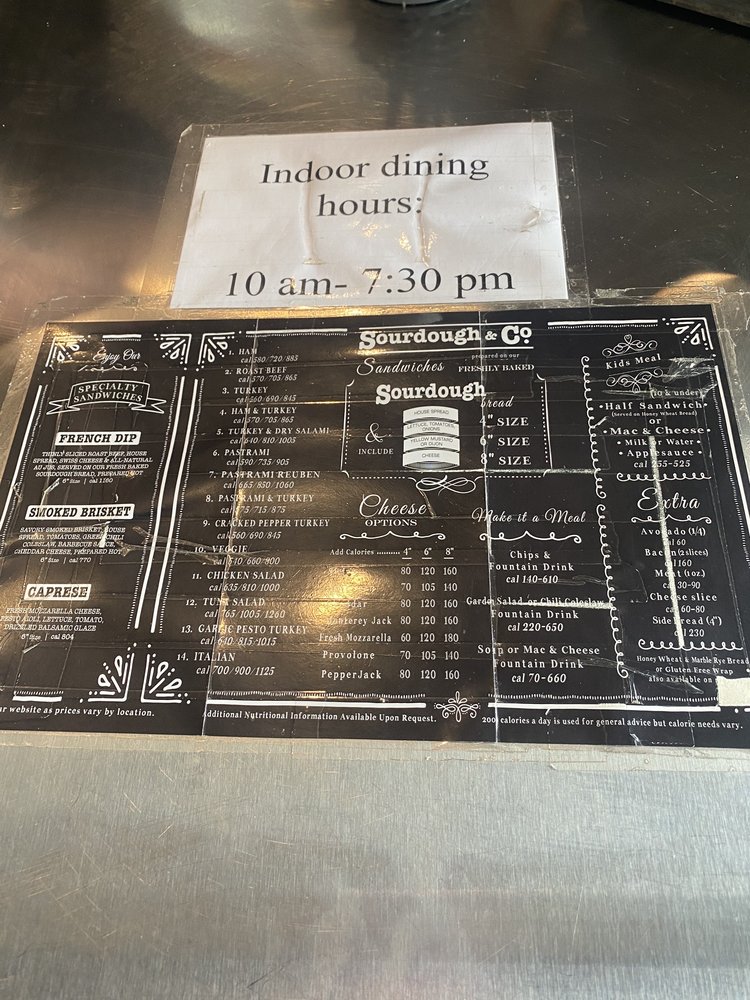 Indoor dining
hours:
10 am- 7:30 pm
Enjoy Our
SPECIALTY
SANDWICHES
FRENCH DIP
THINLY SLICED ROAST BEEF, HOUSE
SPREAD, SWISS CHEESE & ALL-NATURAL
AU JUS, SERVED ON OUR FRESH BAKED
SOURDOUGH BREAD, PREPARED HOT
8" Size | cal 1180
SMOKED BRISKET
SAVORY SMOKED BRISKET, HOUSE
SPREAD, TOMATOES, GREEN CHILI
COLESLAW, BARBECUE SAUCE,
CHEDDAR CHEESE, PREPARED HOT
8" Size | cal 770
CAPRESE
FRESH MOZZARELLA CHEESE,
PESTO AIOLI, LETTUCE, TOMATO,
DRIZZLED BALSAMIC GLAZE
8" Size | cal 804
1. HAM
cal 580/720/885
2. ROAST BEEF
cal 570/705/865
3. TURKEY
cal 560/690/845
4. HAM & TURKEY
cal 570/705/865
5. TURKEY & DRY SALAMI
cal 640/810/1005
6. PASTRAMI
cal 590/735/905
7. PASTRAMI REUBEN
cal 665/850/1060
8. PASTRAMI & TURKEY
cal 575/715/875
9. CRACKED PEPPER TURKEY
cal 560/690/845
10. VEGGIE
cal 540/660/800
11. CHICKEN SALAD
cal 635/810/1000
12. TUNA SALAD
cal 765/1005/1260
13. GARLIC PESTO TURKEY
cal 640/815/1015
14. ITALIAN
cal 700/900/1125
Sourdough & Co.
Sandwiches
prepared on our
FRESHLY BAKED
Sourdough
bread
& INCLUDE
HOUSE SPREAD
LETTUCE, TOMATOES,
ONIONS
YELLOW MUSTARD
OR DIJON
CHEESE
4" SIZE
6" SIZE
8" SIZE
Cheese
OPTIONS
Add Calories .......... 4" 6" 8"
80 120 160
70 105 140
80 120 160
Monterey Jack 80 120 160
Fresh Mozzarella 60 120 180
Provolone 70 105 140
PepperJack 80 120 160
Make it a Meal
Chips &
Fountain Drink
cal 140-610
Garden Salad or Chili Coleslaw
Fountain Drink
cal 220-650
Soup or Mac & Cheese
Fountain Drink
cal 70-660
Kids Meal
(10 & under)
• Half Sandwich •
(Served on Honey Wheat Bread)
or
• Mac & Cheese •
• Milk or Water •
• Applesauce •
cal 255-525
Extra
Avocado (1/4)
cal 60
Bacon (2 slices)
cal 160
Meat (1oz.)
cal 30-90
Cheese slice
cal 60-80
Side Bread (4")
cal 230
Honey Wheat & Marble Rye Bread
or Gluten Free Wrap
also available on
ur website as prices vary by location.
Additional Nutritional Information Available Upon Request.
200 calories a day is used for general advice but calorie needs vary.